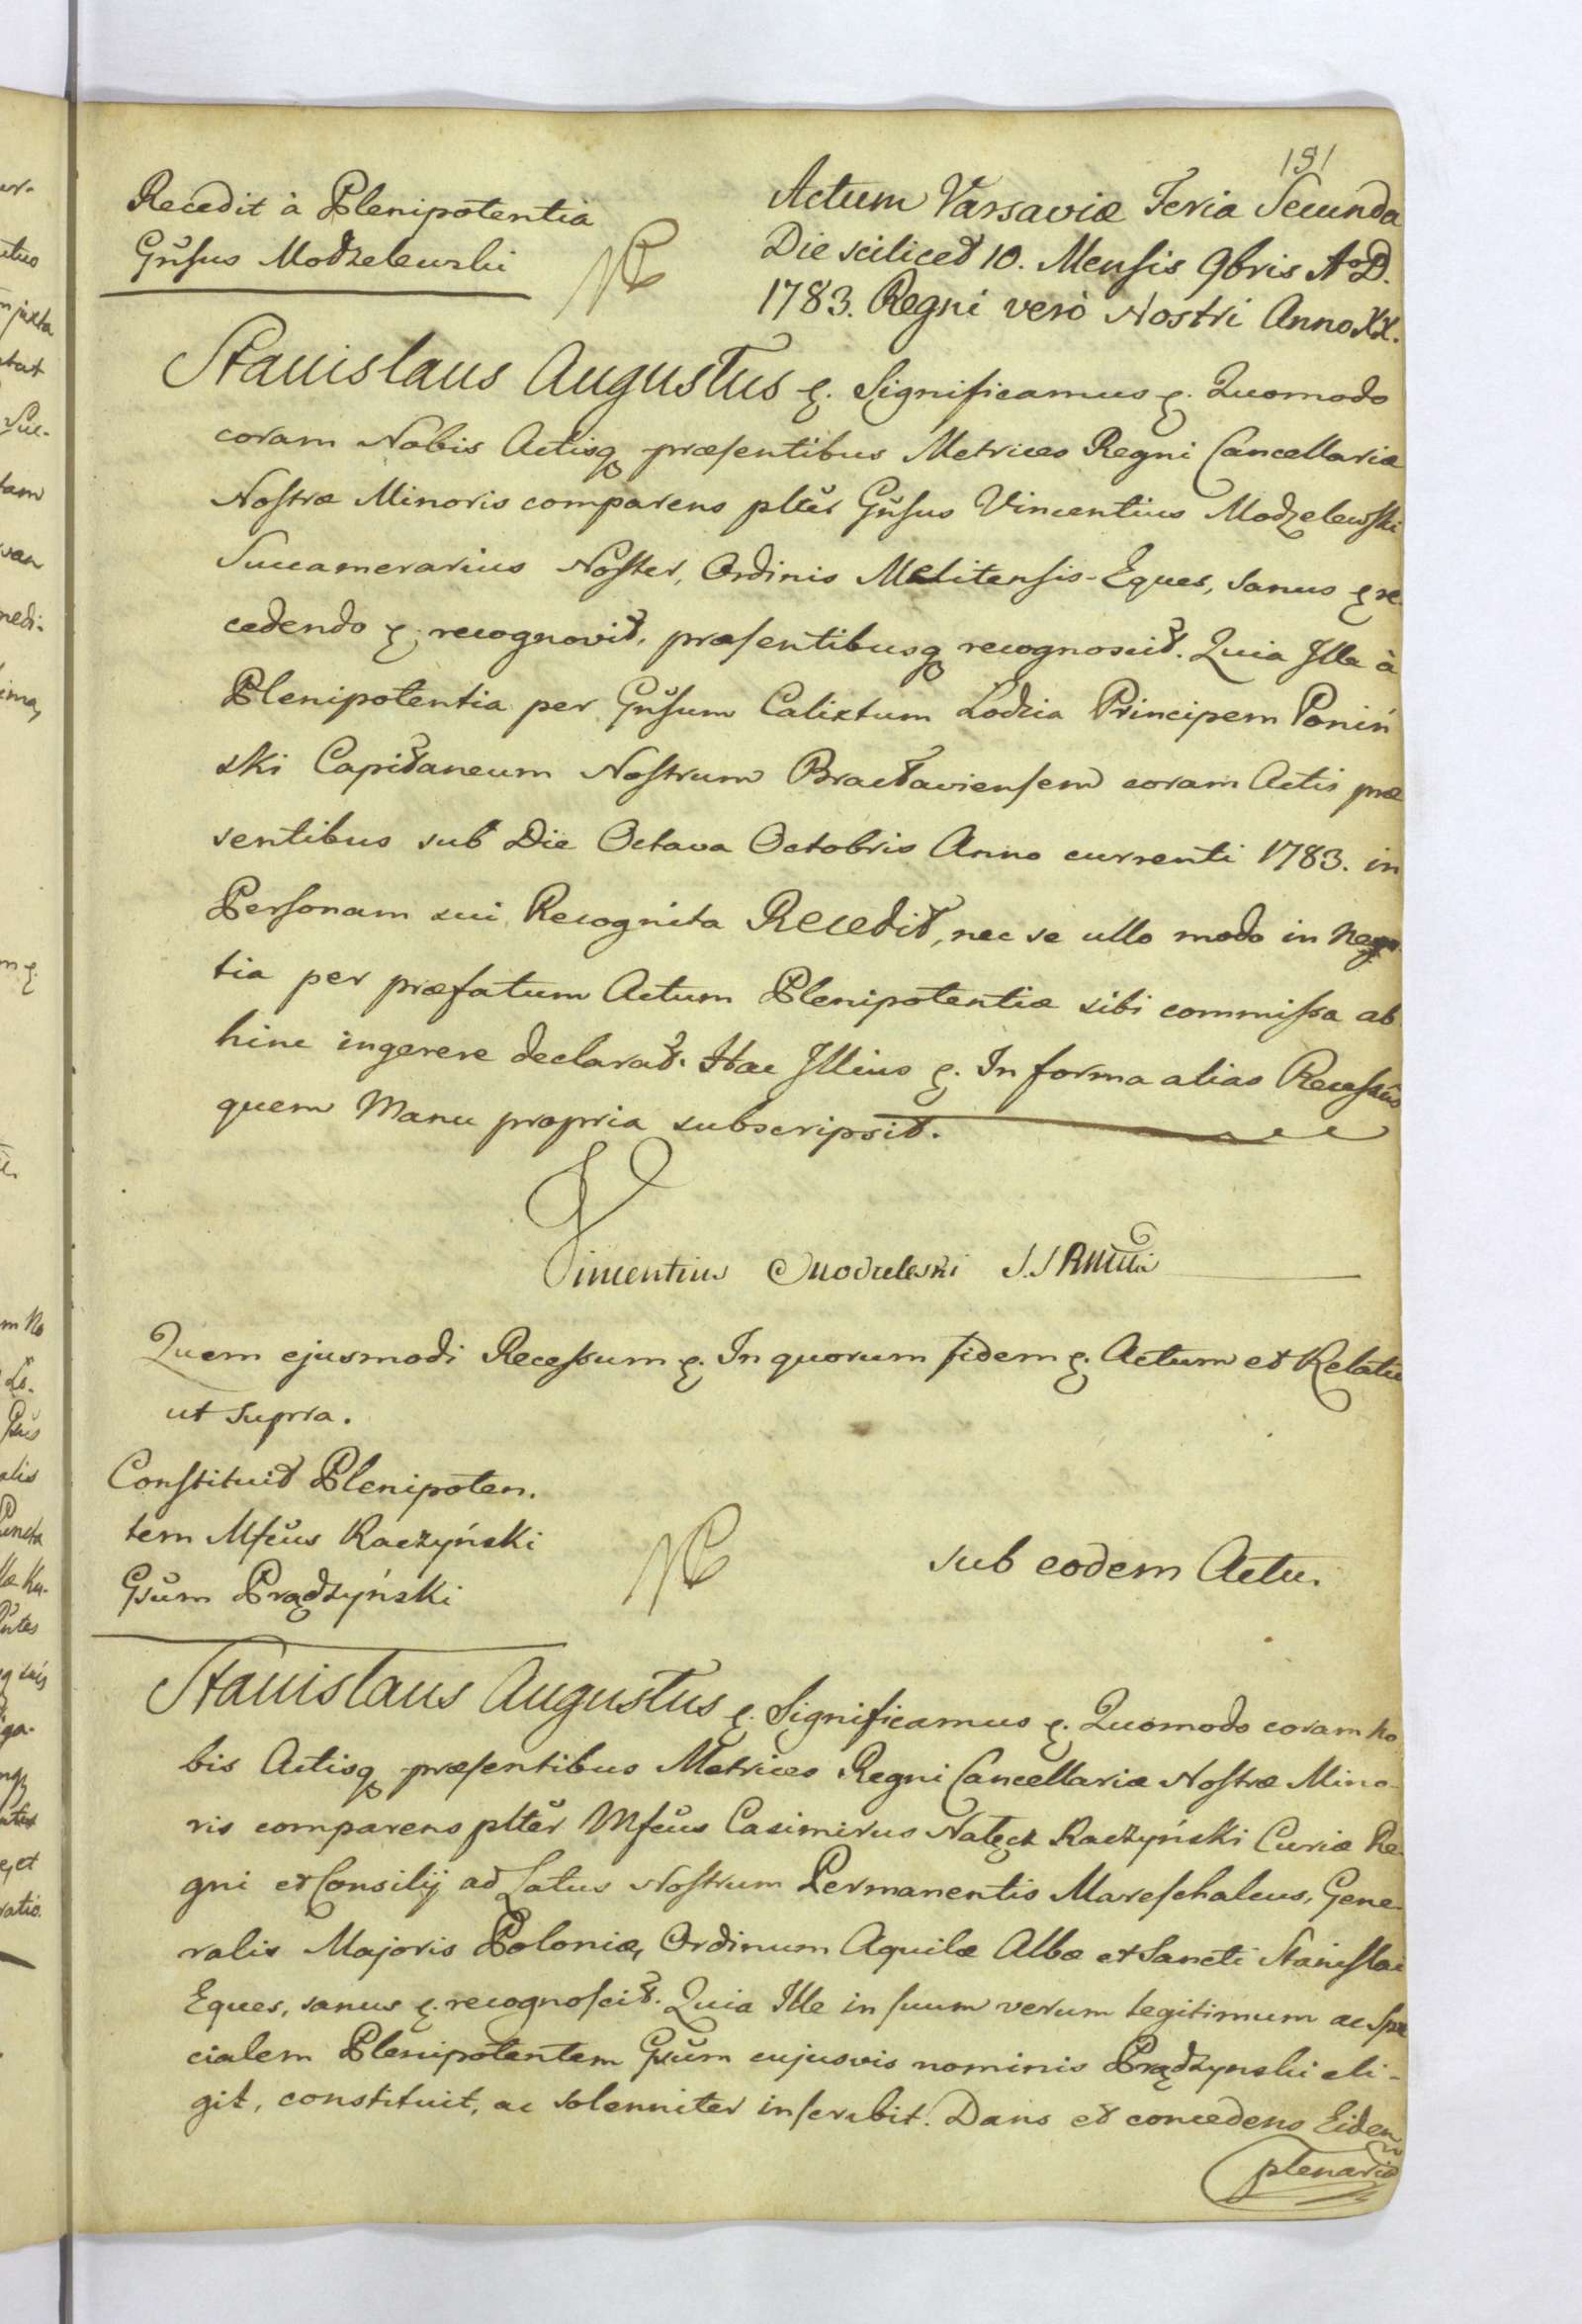 191
Recedit à Plenipotentia
Gnsus Modzelewski
Actum Varsaviæ Feria Secunda
Die scilicet 10. Mensis 9bris A.D.
1783. Regni verò Nostri Anno XX.
Stanislaus Augustus Significamus Quomodo
coram Nobis Actisq præsentibus Metrices Regni Cancellariæ
Nostræ Minoris comparens plttr Gnsus Vincentius Modzelewski
Succamerarius Noster, Ordinis Melitensis Eques, sanus re
cedendo recognovit, præsentibusq recognoscit. Quia Ille à
Plenipotentia per Gnsum Calixtum Lodzia Principem Poniń
ski Capitaneum Nostrum Bractaviensem coram Actis præ
sentibus sub Die Octava Octobris Anno currenti 1783. in
Personam sui Recognita Recedit, nec se ullo modo in Nego
tia per præfatum Actum Plenipotentiæ sibi commissa ab
hinc ingerere declarat. Hac Illius In forma alias Recessûs
quem Manu propria subscripsit.
Vincentius Modzeleski
Quem ejusmodi Recessum In quorum fidem Actum et Relatũ
ut supra.
Constituit Plenipoten.
tem Mfcus Raczyński
Gsum Prądzyński
sub eodem Actu.
Stanislaus Augustus Significamus Quomodo coram No
bis Actisq præsentibus Metrices Regni Cancellariæ Nostræ Mino-
ris comparens plttr Mfcus Casimirus Nałęcz Raczyński Curiæ Re
gni et Consilij ad Latus Nostrum Permanentis Mareschalcus, Gene-
ralis Majoris Poloniæ, Ordinum Aquilæ Albæ et Sancti Stanislai
Eques, sanus recognoscit. Quia Ille in suum verum legitimum ac Spe
cialem Plenipotentem Gsum cujusvis nominis Prądzynski eli-
git, constituit, ac solenniter inscribit. Dans et concedens Eidem
plenariã